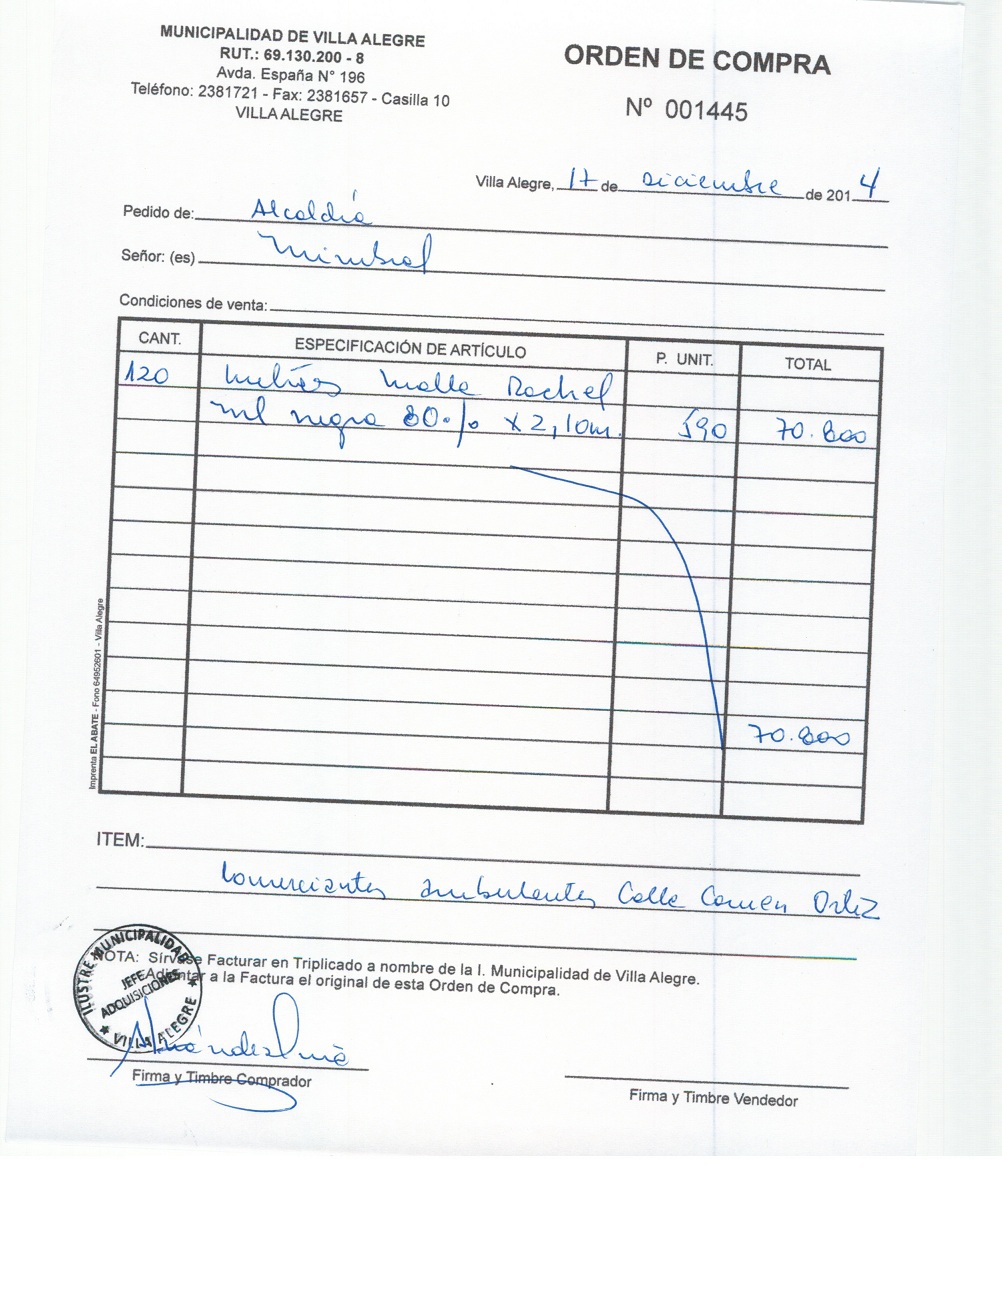 MUNICIPALIDAD DE VILLA ALEGRE
RUT.: 69.130.200 - 8
Avda. España N° 196
Teléfono: 2381721 - Fax: 2381657 - Casilla 10
VILLA ALEGRE
ORDEN DE COMPRA
Nº 001445
Villa Alegre, 17 de Diciembre de 2014
Pedido de: Alcaldía
Señor: (es) Mimbral
Condiciones de venta:
CANT. ESPECIFICACIÓN DE ARTÍCULO P. UNIT. TOTAL
120 Metros Malla Rachel
negra 80% x 2,10m. 590 70.800
70.800
Imprenta EL ABATE - Fono 64952601 - Villa Alegre
ITEM:
Comerciantes Ambulantes Calle Carmen Ortiz
NOTA: Sírvase Facturar en Triplicado a nombre de la I. Municipalidad de Villa Alegre.
Adjuntar a la Factura el original de esta Orden de Compra.
ILUSTRE MUNICIPALIDAD
JEFE
ADQUISICIONES
★ VILLA ALEGRE ★
Firma y Timbre Comprador
Firma y Timbre Vendedor